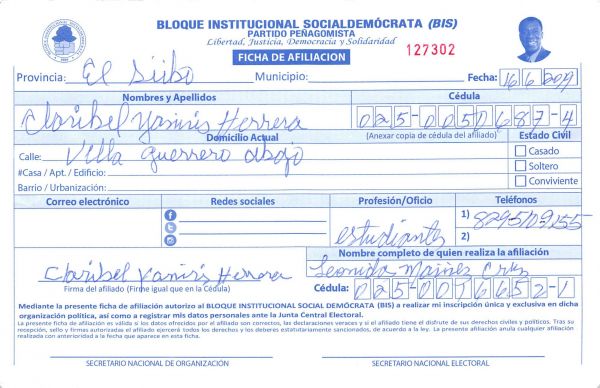 BLOQUE INSTITUCIONAL SOCIALDEMÓCRATA (BIS)
PARTIDO PEÑAGOMISTA
Libertad, Justicia, Democracia y Solidaridad
FICHA DE AFILIACION
127302
Provincia: El Seibo Municipio: Fecha: 16/6/2019
Nombres y Apellidos Cédula
Claribel Yamiris Herrera 025-0050687-4
Domicilio Actual (Anexar copia de cédula del afiliado) Estado Civil
Calle: Villa Guerrero abajo Casado
#Casa / Apt. / Edificio: Soltero
Barrio / Urbanización: Conviviente
Correo electrónico Redes sociales Profesión/Oficio Teléfonos
estudiante 1) 8295109155
2)
Nombre completo de quien realiza la afiliación
Claribel Yamiris Herrera Leonida Cruz
Firma del afiliado (Firme igual que en la Cédula) Cédula: 025-0016652-1
Mediante la presente ficha de afiliación autorizo al BLOQUE INSTITUCIONAL SOCIAL DEMÓCRATA (BIS) a realizar mi inscripción única y exclusiva en dicha
organización política, así como a registrar mis datos personales ante la Junta Central Electoral.
La presente ficha de afiliación es válida si los datos ofrecidos por el afiliado son correctos, las declaraciones veraces y si el afiliado tiene el disfrute de sus derechos civiles y políticos. Tras su
recepción, sello y firmas autorizadas el afiliado ejercerá todos los derechos y los deberes estatutariamente sancionados, de acuerdo a la ley. La presente afiliación anula cualquier afiliación
realizada con anterioridad a la fecha que aparece en esta ficha.
SECRETARIO NACIONAL DE ORGANIZACIÓN SECRETARIO NACIONAL ELECTORAL